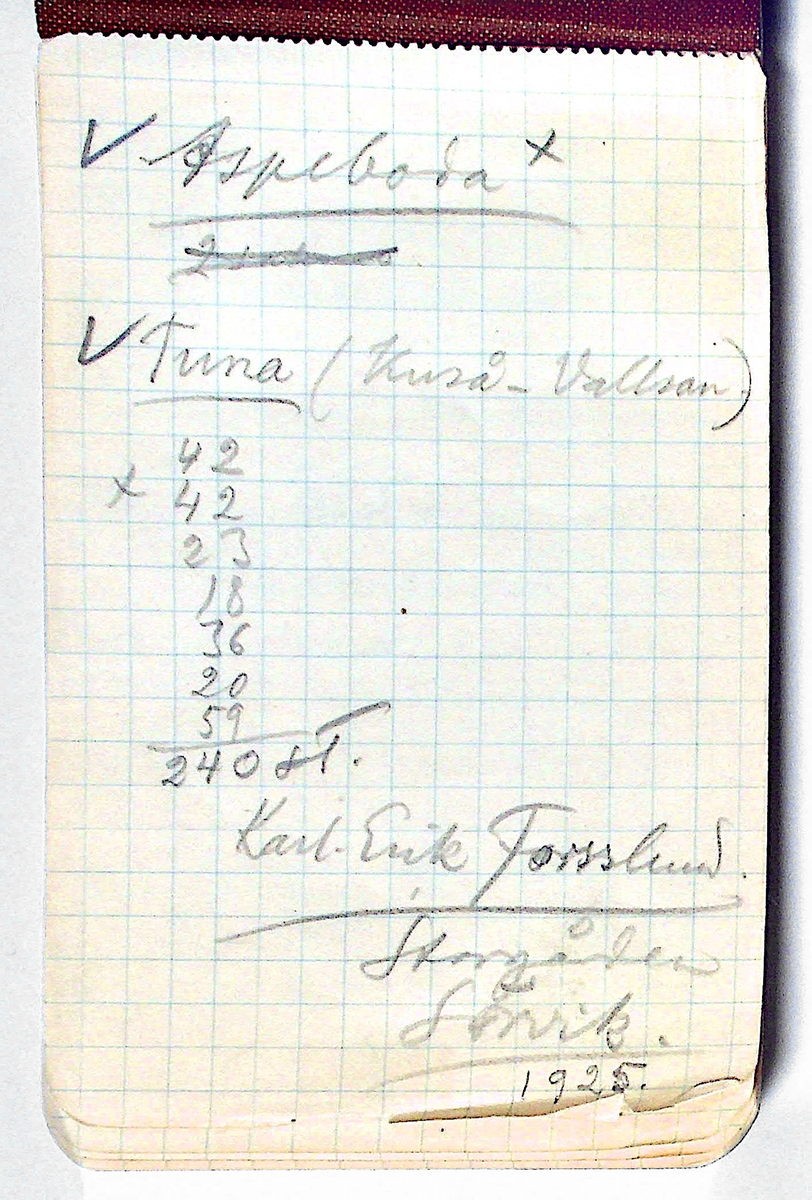 ✓ Aspeboda ×
✓ Tuna (Kuså - Vallsån)
42
× 42
23
18
36
20
59
240 st.
Karl-Erik Forsslund.
Storgården
Sörvik.
1925.